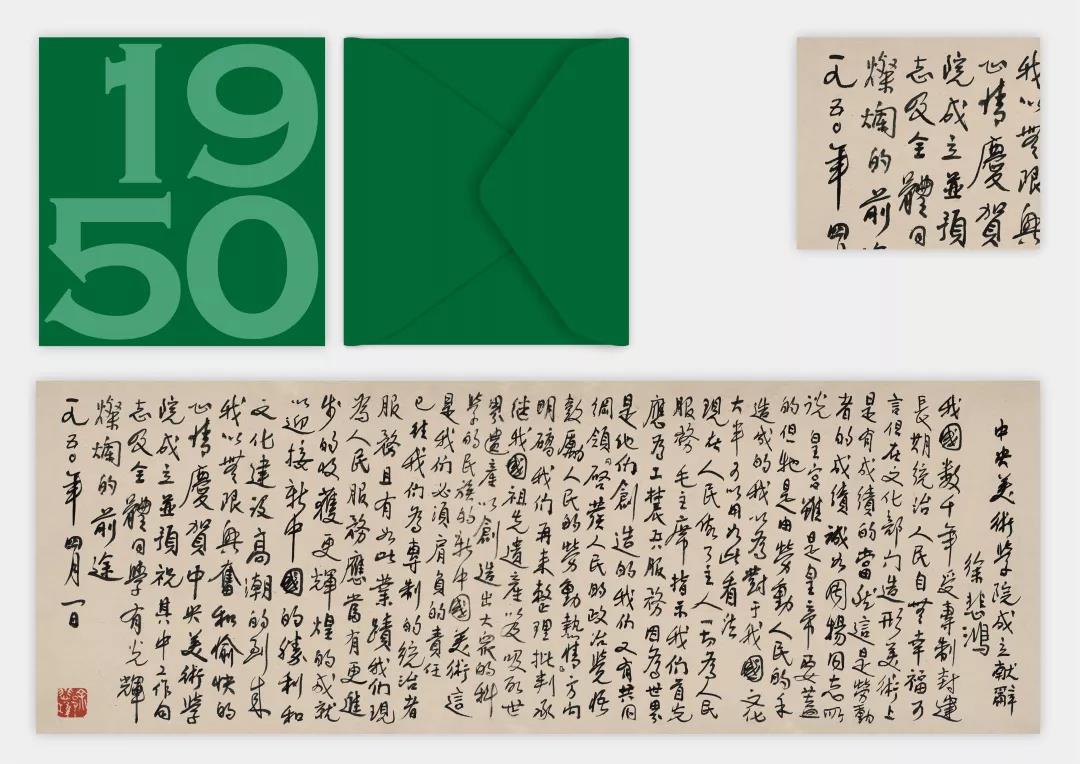 19
50
我以無限興
心情慶賀
院成立並預
志及全體同
燦爛的前
一九五〇年四
中央美術学院成立献辭
徐悲鴻
我國数千年受專制封建
長期统治人民自無幸福可
言但在文化部门造形美術上
是有成績的當然這是勞動
者的成績誠如周揚同志所
说皇宫雖是皇帝要蓋
的但牠是由勞動人民的手
造成的我以為對于我國文化
大半可以用如此看法
現在人民做了主人一切為人民
服務毛主席指示我们首先
應為工農兵服務因為世界
是他们創造的我们又有共同
綱領啓發人民的政治覺悟
鼓勵人民的勞動熱情方向
明確我们再来整理批判承
继我國祖先遺産以及吸取世
界遺產以創造出大衆的科
学的民族的新中國美術這
是我们必須肩負的責任
已往我们為專制的统治者
服務且有如此業蹟我们現
為人民服務應當有更進
步的收獲更輝煌的成就
以迎接新中國的勝利和
文化建设高潮的到来
我以無限興奮和愉快的
心情慶賀中央美術学
院成立並預祝其中工作同
志及全體同學有光輝
燦爛的前途
一九五〇年四月一日